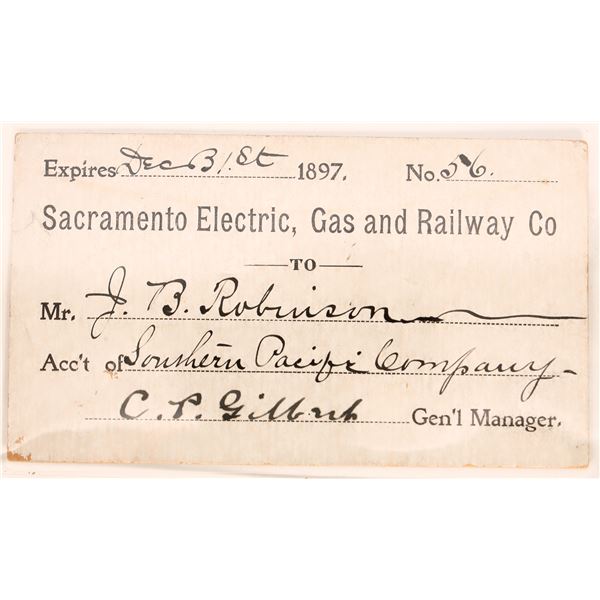 Expires Dec 31st 1897. No. 56.
Sacramento Electric, Gas and Railway Co
TO
Mr. J. B. Robinson
Acc't of Southern Pacific Company
C. P. Gilbert Gen'l Manager.